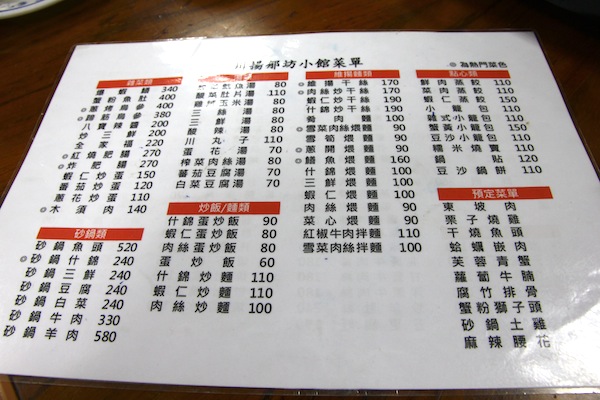 川揚郁坊小館菜單
◎為熱門菜色
雜菜類
鱔 340
蟹粉魚肚 400
蔥烤烏參 400
◎蹄筋烏參 380
八寶辣醬 200
炒三鮮 200
全家福 220
◎紅燒肥腸 270
◎炸肥腸 270
蝦仁炒蛋 150
番茄炒蛋 120
蔥花炒蛋 110
◎木須肉 140
砂鍋類
砂鍋魚頭 520
◎砂鍋什錦 240
砂鍋三鮮 240
砂鍋豆腐 240
砂鍋白菜 240
砂鍋牛肉 330
砂鍋羊肉 580
湯 80
酸菜肚片湯 110
雞玉米湯 80
三絲湯 80
三鮮湯 80
酸辣湯 80
川丸子 110
蛋花湯 70
榨菜肉絲湯 80
蕃茄豆腐湯 70
白菜豆腐湯 70
炒飯/麵類
什錦蛋炒飯 90
蝦仁蛋炒飯 90
肉絲蛋炒飯 80
蛋炒飯 60
什錦炒麵 110
蝦仁炒麵 110
肉絲炒麵 100
維揚麵類
◎維揚干絲 170
◎肉絲炒干絲 170
蝦仁炒干絲 190
什錦炒干絲 190
肴肉麵 100
◎雪菜肉絲煨麵 90
雪筍煨麵 90
◎蔥開煨麵 90
◎鱔魚煨麵 160
什錦煨麵 100
三鮮煨麵 100
蝦仁煨麵 100
肉絲煨麵 90
菜心煨麵 90
紅椒牛肉拌麵 110
雪菜肉絲拌麵 100
點心類
鮮肉蒸餃 110
菜肉蒸餃 110
蝦仁蒸餃 150
小籠包 110
韓式小籠包 110
蟹黃小籠包 150
豆沙小籠包 110
糯米燒賣 110
鍋貼 120
豆沙鍋餅 110
預定菜單
東坡肉
栗子燒雞
干燒魚頭
蛤蠣嵌肉
芙蓉青蟹
蘿蔔牛腩
腐竹排骨
蟹粉獅子頭
砂鍋土雞
麻辣腰花